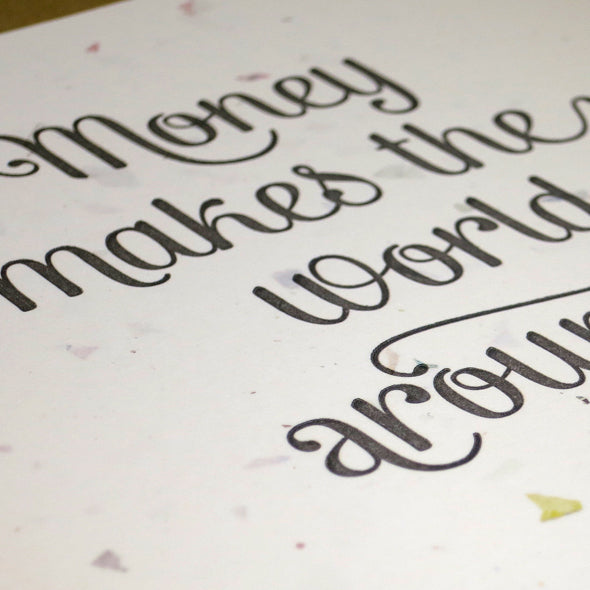 Money
makes the
world
aroun